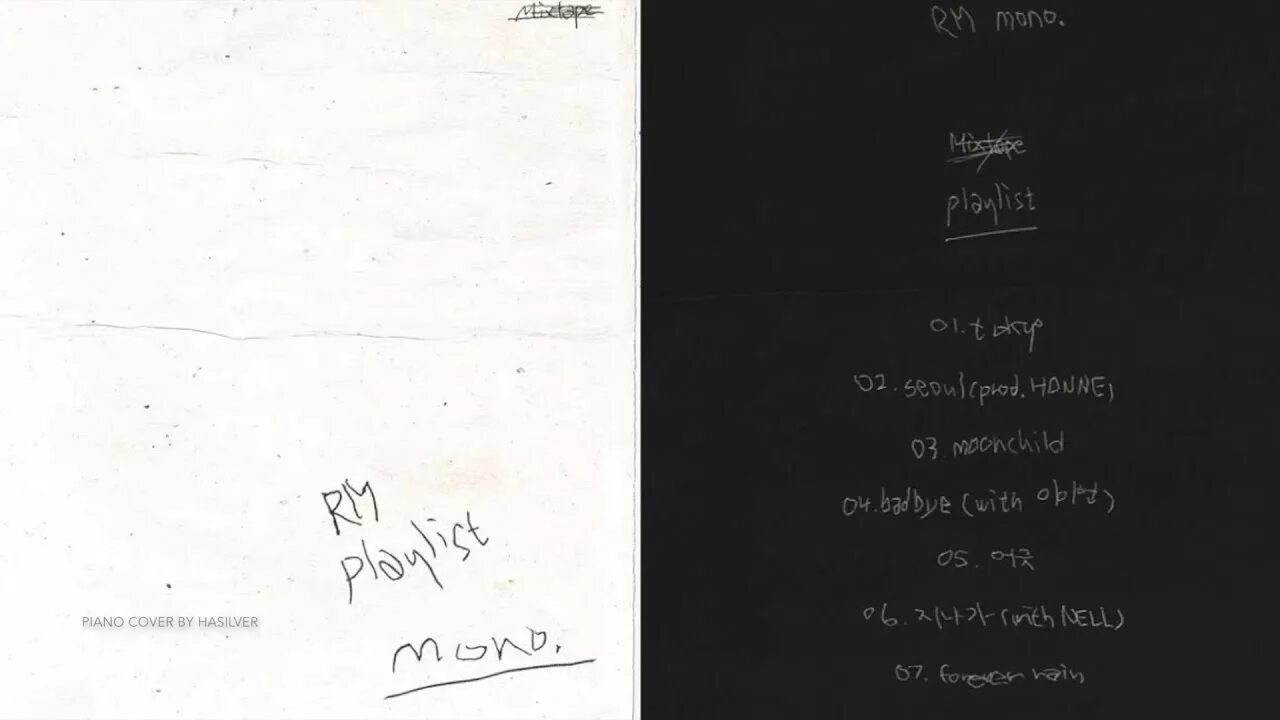 Mixtape
RM
playlist
mono.
PIANO COVER BY HASILVER
RM mono.
Mixtape
playlist
01. tokyo
02. seoul (prod. HONNE)
03. moonchild
04. badbye (with 이이언)
05. 어긋
06. 지나가 (with NELL)
07. forever rain